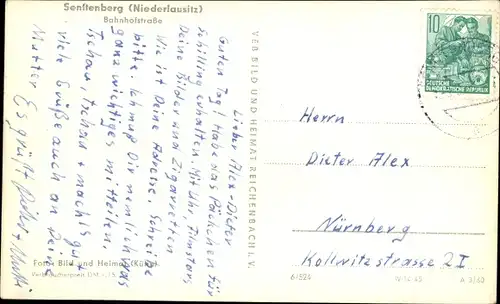 Senftenberg (Niederlausitz)
Bahnhofstraße
Lieber Alex-Dieter
Guten Tag! Habe das Päckchen für
Schilling erhalten. Mit Uhr,
Deine Bilder und Zigaretten
Wie ist Deine Adresse, schreibe
bitte. Ich muß Dir nemlich was
ganz wichtiges mitteilen.
Tschau, tschau + machs gut
viele Grüße auch an Deine
Mutter Es grüßt Dieter +
Foto: Bild und Heimat (Kühn)
VEB BILD UND HEIMAT REICHENBACH i. V.
10
DEUTSCHE
DEMOKRATISCHE REPUBLIK
Herrn
Dieter Alex
Nürnberg
Kollwitzstrasse 2 I